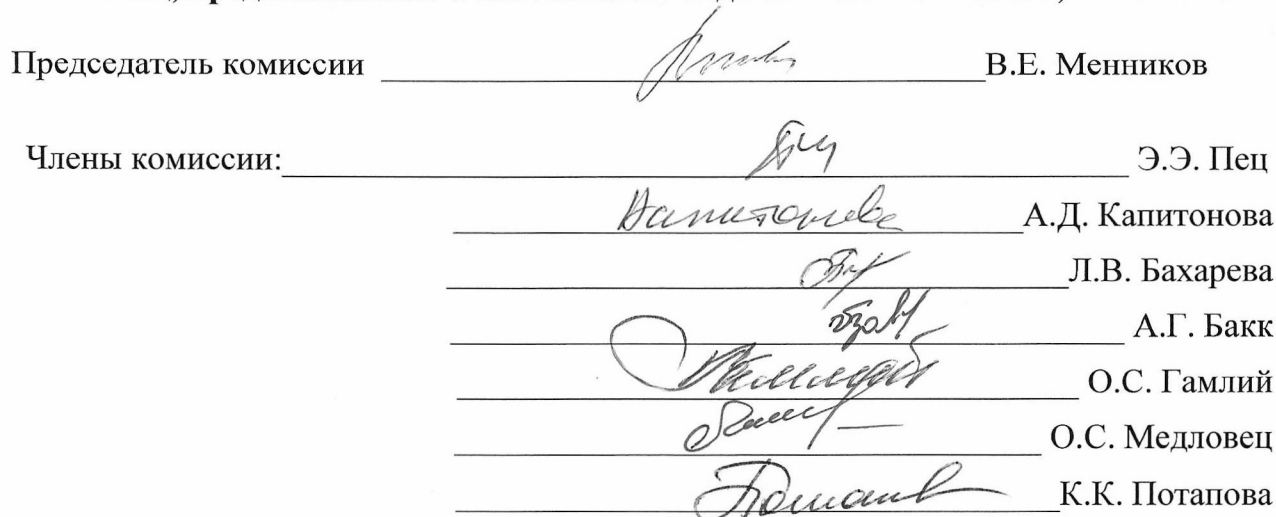 Председатель комиссии В.Е. Менников
Члены комиссии: Э.Э. Пец
А.Д. Капитонова
Л.В. Бахарева
А.Г. Бакк
О.С. Гамлий
О.С. Медловец
К.К. Потапова